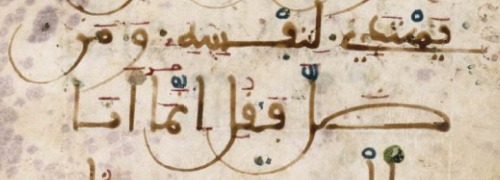 يهتدي لنفسه ومن
ضل فقل انما انا